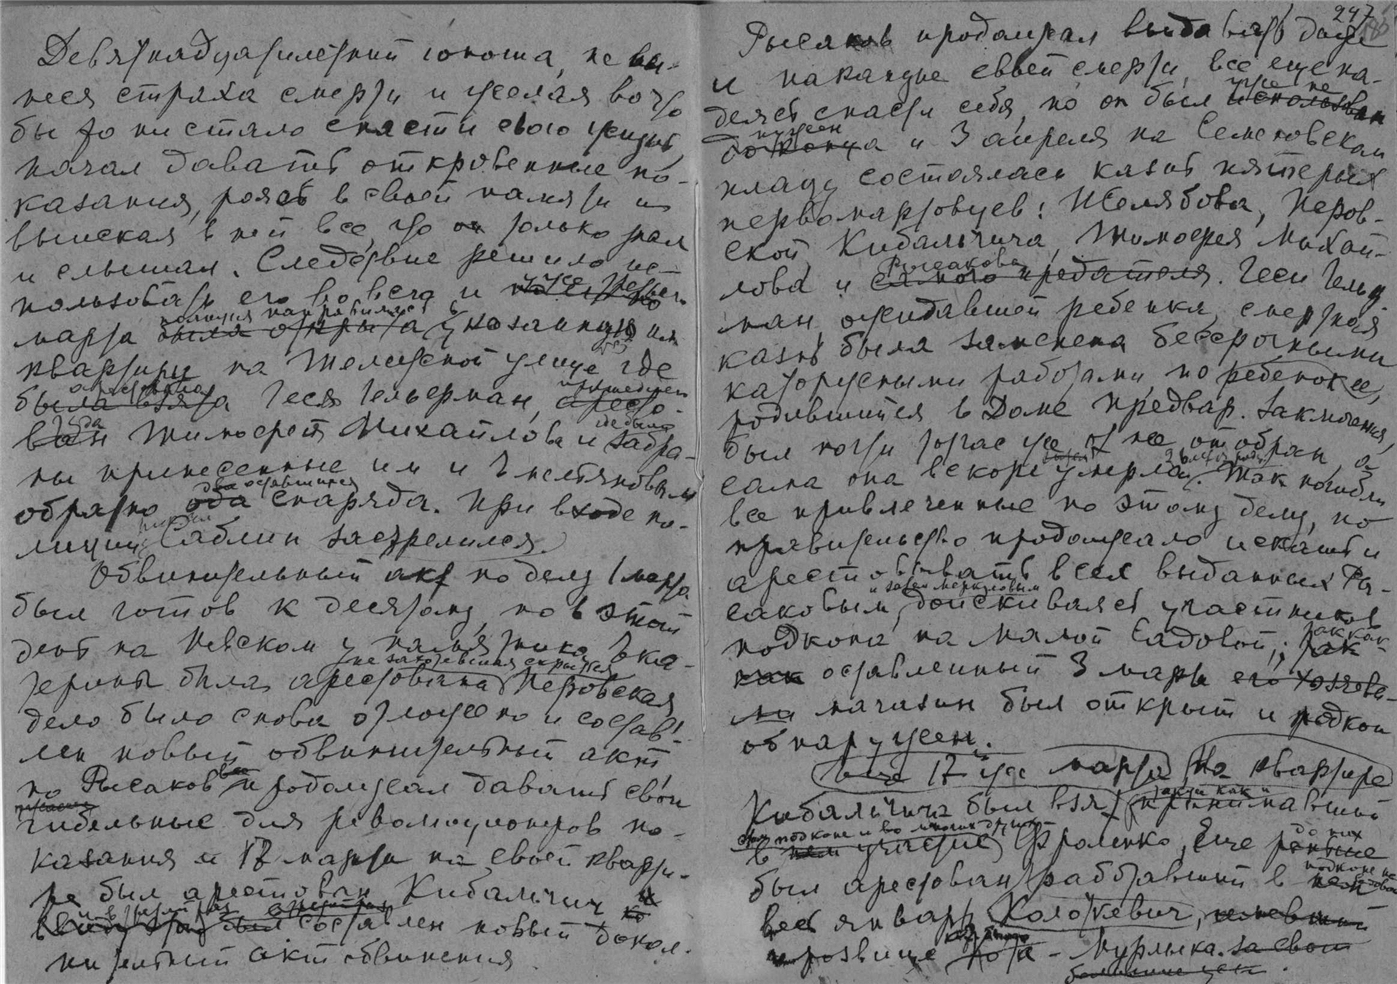 Девятнадцатилетний юноша, не вы-
неся страха смерти и желая во что
бы то ни стало спасти свою жизнь,
начал давать откровенные по-
казания, роясь в своей памяти и
выискивая в ней все, что он только знал
и слышал. Следствие решило ис-
пользовать его во всем и
марта полиция направилась в указанную им
квартиру на Тележной улице, где
арестована Геся Гельфман, пришедший
туда Тимофей Михайлов и забра-
ны принесенные им и
обратно два оставшиеся снаряда. При входе по-
лиции Саблин застрелился.
Обвинительный акт по делу 1 марта
был готов к десятому, но в этот
день на Невском у памятника Ека-
терины была арестована не захотевшая скрыться Перовская
дело было снова отложено и состав-
лен новый обвинительный акт,
но Рысаков все продолжал давать свои
гибельные для революционеров по-
казания и 17 марта на своей кварти-
ре был арестован Кибальчич и
в третий раз составлен новый допол-
нительный акт обвинения.
247
Рысаков продолжал выдавать даже
и накануне своей смерти, все еще на-
деясь спасти себя, но он был уже не
нужен и 3 апреля на Семеновском
плацу состоялась казнь пятерых
первомартовцев: Желябова, Перов-
ской Кибальчича, Тимофея Михай-
лова и Рысакова самого предателя. Геси Гельф
ман, ожидавшей ребенка, смертная
казнь была заменена бессрочными
каторжными работами, но ребенок ее,
родившийся в Доме предвар. заключения,
был почти тотчас же от нее отобран, а
сама она вскоре умерла. Так погибли
все привлеченные по этому делу, но
правительство продолжало искать и
арестовывать всех выданных Ры-
саковым, и затем Меркуловым доискиваясь участников
подкопа на Малой Садовой, так как
оставленный 3 марта его хозяева-
ми магазин был открыт и подкоп
обнаружен.
17 уже марта на квартире
Кибальчича был взят принимавший
в подкопе и во многих других участие Фроленко, еще до них
был арестован работавший в подкопе
весь январь Колоткевич,
прозвище Кота-Мурлыка. за свои